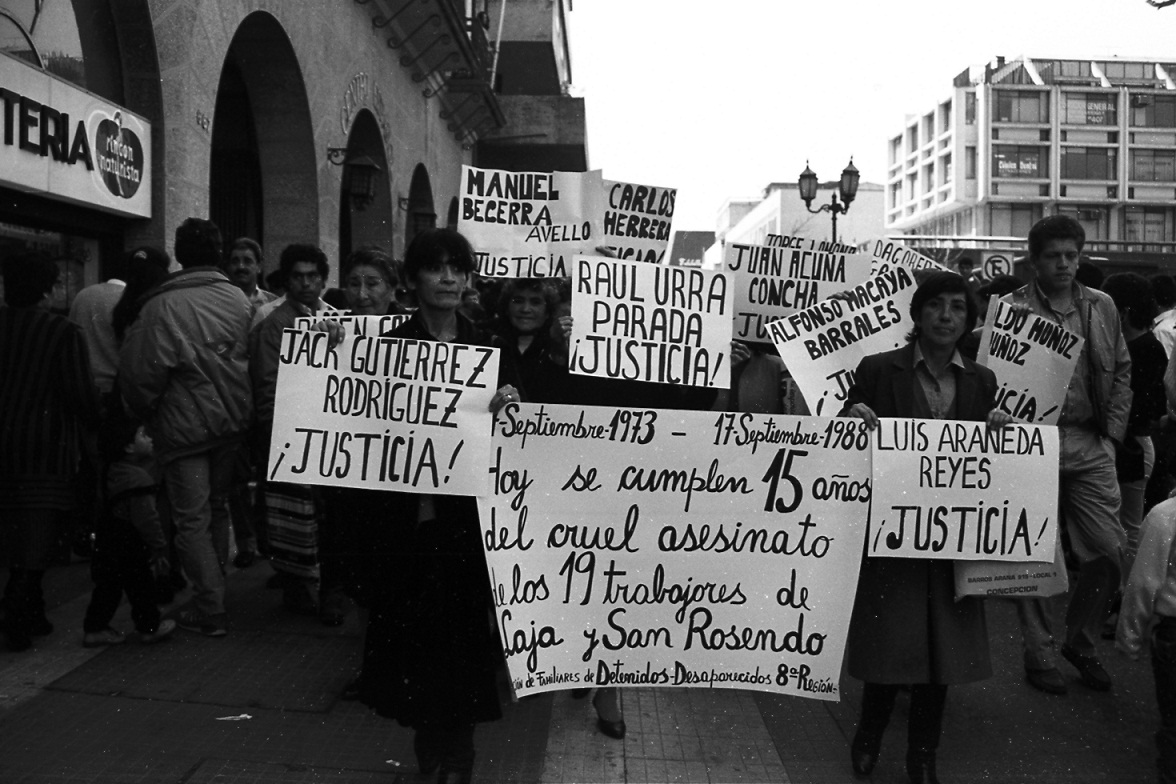 TERIA
rincon
naturista
MANUEL
BECERRA
AVELLO
JUSTICIA
CARLOS
HERRERA
RAUL URRA
PARADA
¡JUSTICIA!
JUAN ACUNA
CONCHA
ALFONSO MACAYA
BARRALES
JACK GUTIERREZ
RODRÍGUEZ
¡JUSTICIA!
MUÑOZ
LUIS ARANEDA
REYES
¡JUSTICIA!
-Septiembre-1973 - 17-Septiembre-1988
Hoy se cumplen 15 años
del cruel asesinato
de los 19 trabajores de
Laja y San Rosendo
de Familiares de Detenidos-Desaparecidos 8ª Región-
BARROS ARANA
LOCAL
CONCEPCION
GENERAL